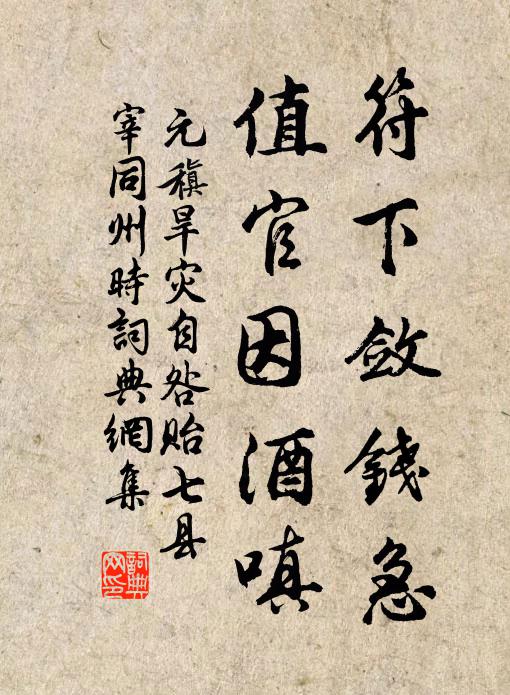 符下斂錢急
值官因酒嗔
元稹旱灾自咎貽七县
宰同州時詞典網集
詞典
网印